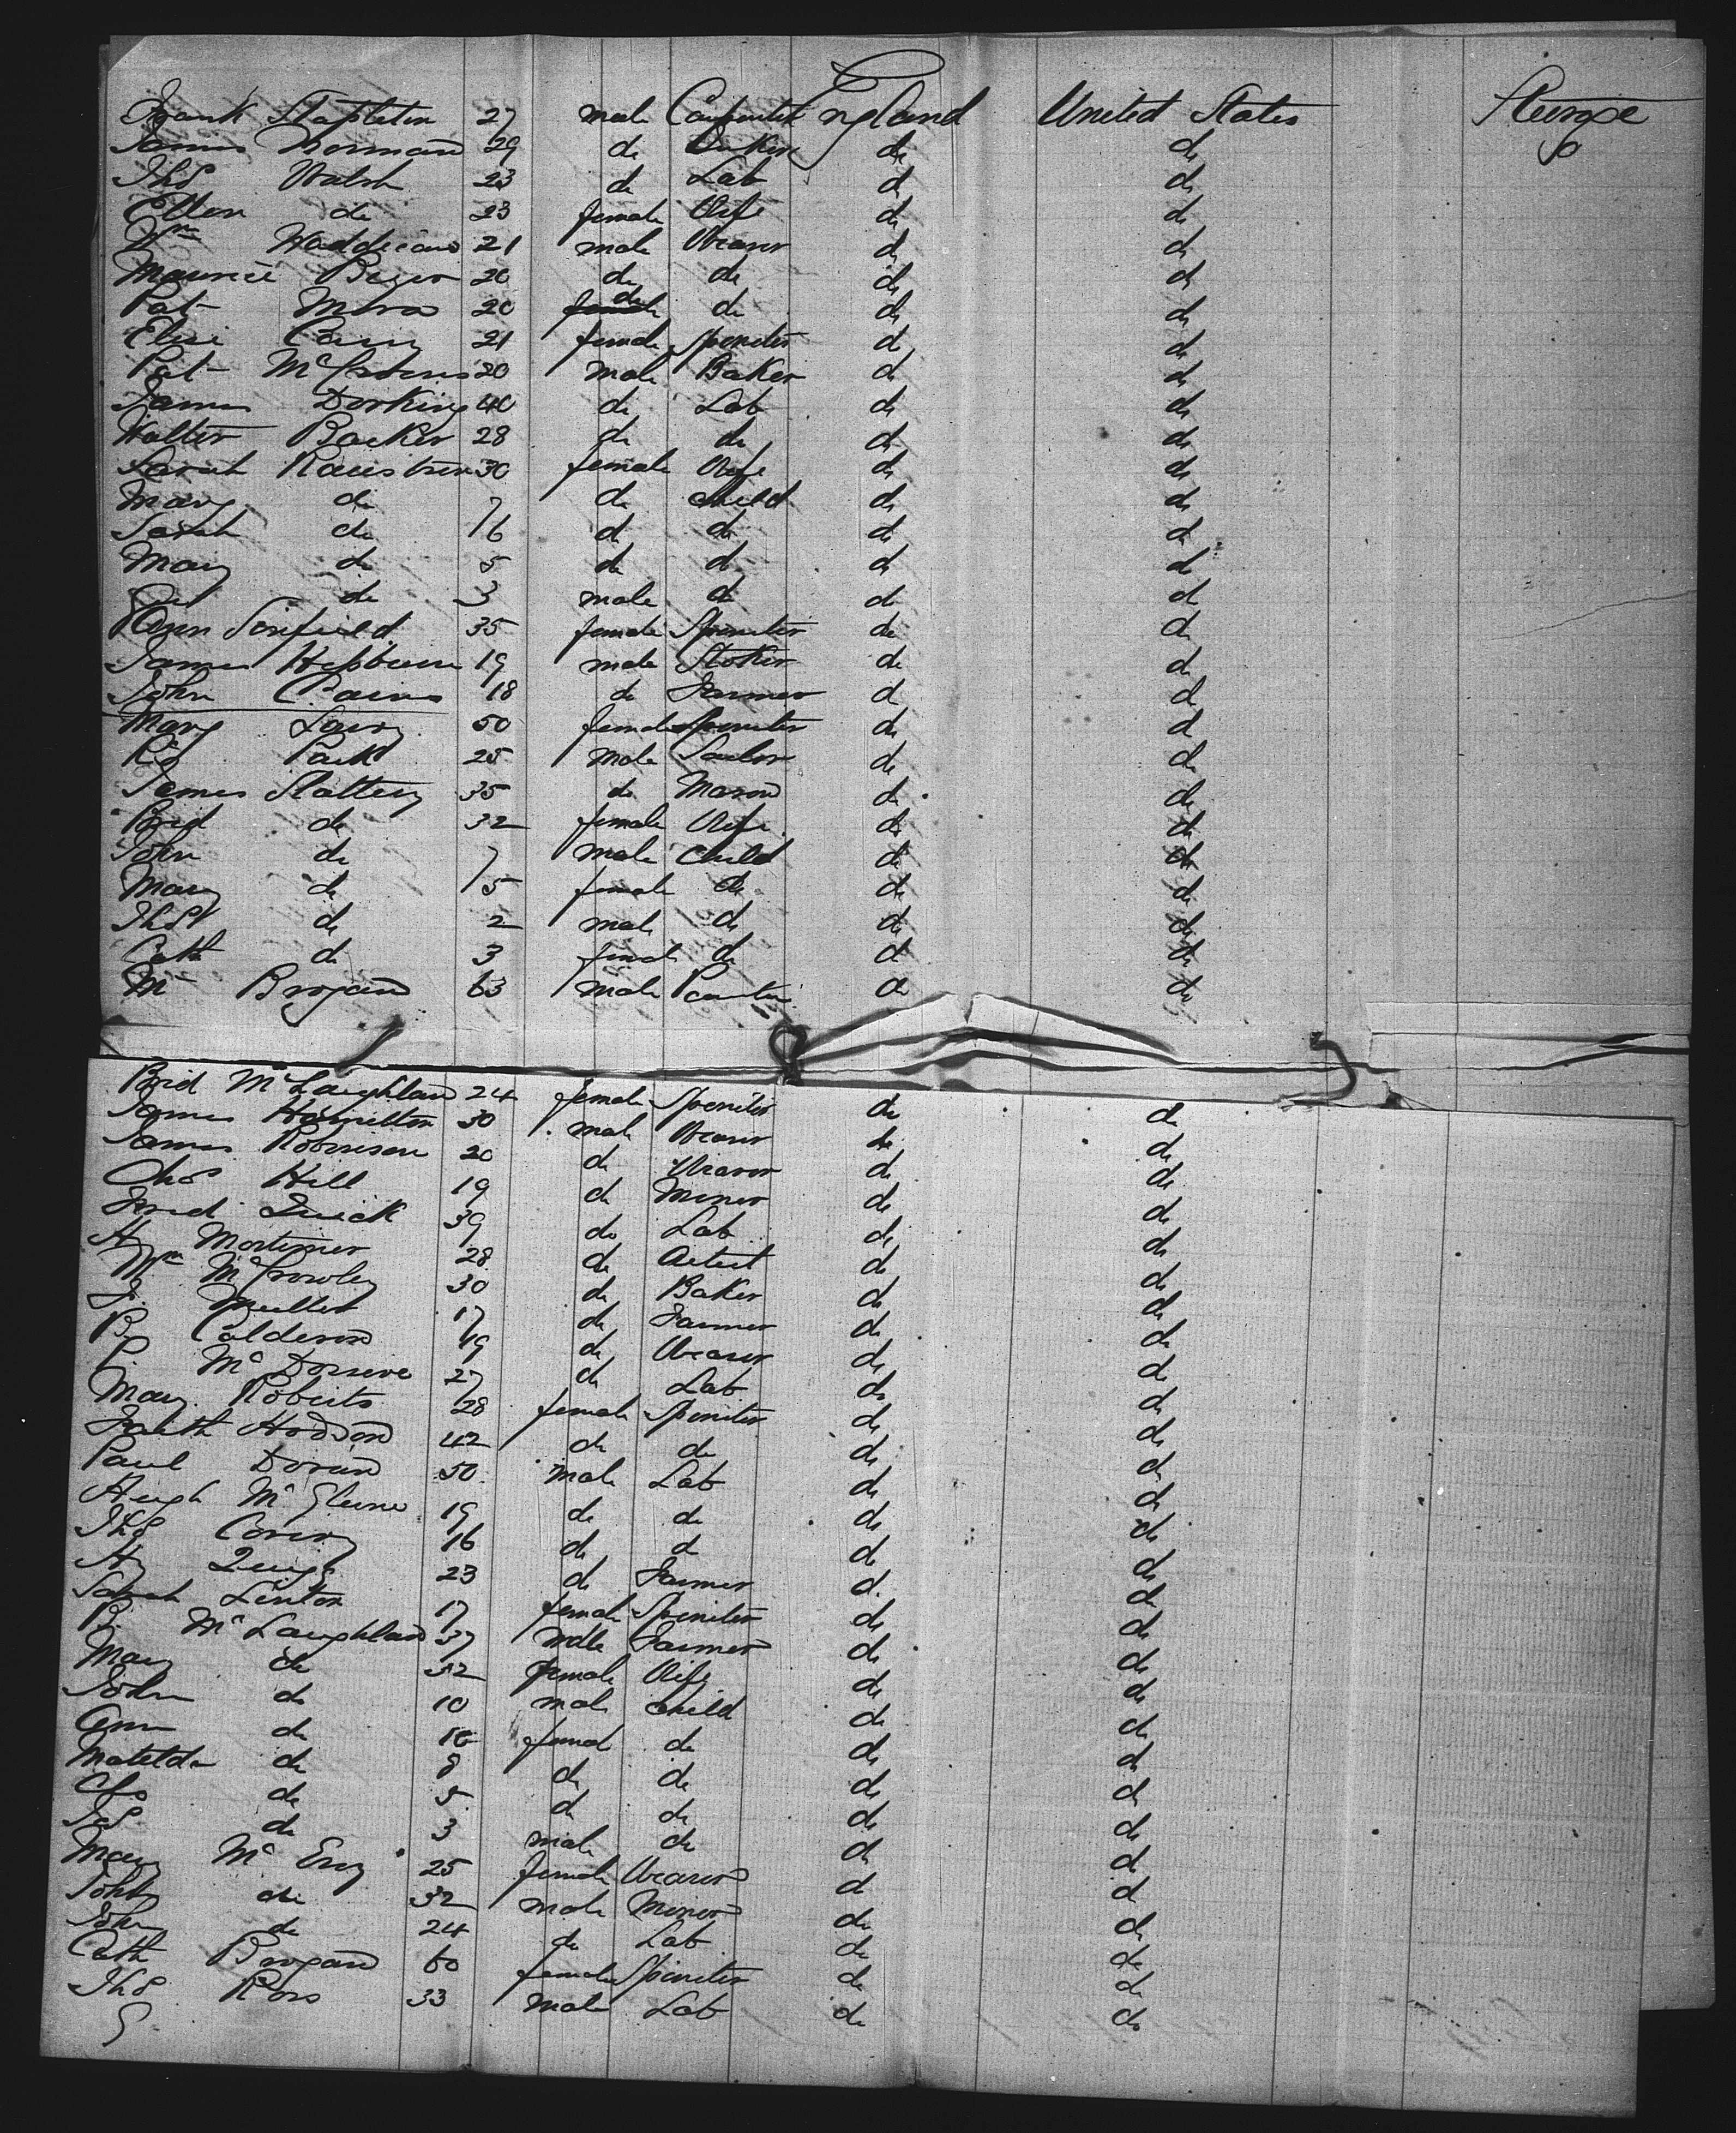 Frank Stapleton 27 male Carpenter England United States Steerage
James Norman 29 do do do
Thos Walsh 23 do Lab do do
Ellen do 23 female Wife do do
Wm 21 male Weaver do do
Maurice 20 do do do do
Pat 20 do do do do
21 female Spinster do do
Pat 20 male Baker do do
James Dorking 40 do Lab do do
Walter Backer 28 do do do do
Sarah 30 female Wife do do
Mary do 7 do child do do
Sarah do 6 do do do do
Mary do 5 do do do do
do 3 male do do do
Ann 35 female Spinster do do
James Hepburn 19 male Stoker do do
John Cairns 18 do Farmer do do
Mary 50 female Spinster do do
25 male do do
James Slattery 35 do Mason do do
Brid do 32 female Wife do do
John do 7 male Child do do
Mary do 5 female do do do
Thos do 2 male do do do
Cath do 3 female do do do
Brogan 63 male do do
Brid McLaughlan 24 female Spinster do do
James Hamilton 30 male Weaver do do
James Robinson 20 do Weaver do do
Chas Hill 19 do Miner do do
Fred Quick 39 do Lab do do
H Mortimer 28 do Artist do do
Wm McCrowley 30 do Baker do do
J. 17 do Farmer do do
Calderon 19 do Weaver do do
P. 27 do Lab do do
Mary Roberts 28 female Spinster do do
Hodson 42 do do do do
Paul Doran 50 male Lab do do
Hugh 19 do do do do
Thos 16 do do do do
Hy 23 do Farmer do do
Sarah Linton 17 female Spinster do do
B. McLaughlan 37 male Farmer do do
Mary do 32 female Wife do do
John do 10 male child do do
Ann do 10 female do do do
Matilda do 8 do do do do
do 5 do do do do
Jas do 3 male do do do
Mary 25 female Weaver do do
John do 32 male Miner do do
John do 24 do Lab do do
Cath Brogan 60 female Spinster do do
Thos Ross 33 male Lab do do